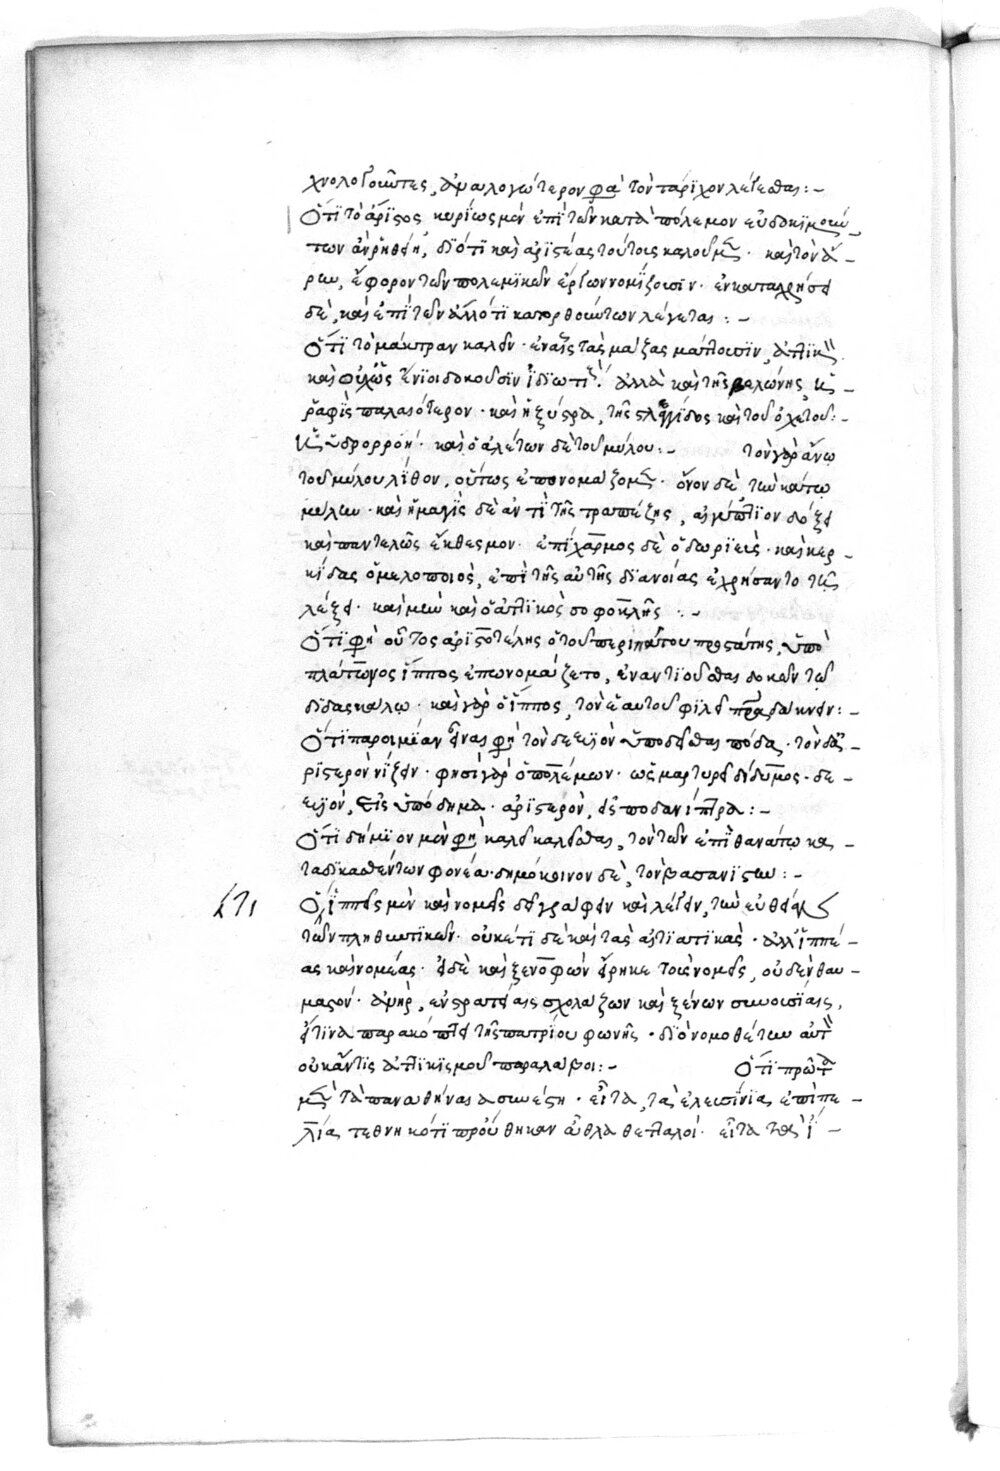 χνολογοῦντες, ἀναλογώτερον φα τὸν τάριχον λέγεσθαι :-
Ὅτι τὸ ἄριστος, κυρίως μὲν ἐπὶ τῶν κατὰ πόλεμον εὐδοκιμούν-
των ἀνῃρήσθη, διότι καὶ ἀριστέας τούτοις καλοῦμ. καὶ τὸν ἄ-
ρην, ἔφορον τῶν πολεμικῶν ἔργων νομίζουσιν. ἐν καταχρήσει
δὲ, καὶ ἐπὶ τῶν ἄλλό τι κατορθούντων λέγεται :-
Ὅτι τὸ μάκτραν καλεῖν. ἐν αἷς τὰς μάζας μάττουσιν, ἀττικ.
καὶ ψιλῶς ἔνιοι δοκοῦσιν ἰδίωτι. ἀλλὰ καὶ τῆς βελόνης, ἡ
ῥαφὶς παλαιότερον. καὶ ἡ ξύστρα, τῆς στλεγγίδος καὶ τοῦ ὀχετοῦ :-
ἡ ὑδρορρόη. καὶ ὁ ἀλέτων δὲ τοῦ μύλου :- τὸν γὰρ ἄνω
τοῦ μύλου λίθον, οὕτως ἐπονομάζομ. ὄνον δὲ τὸν κάτω
μύλων. καὶ ἡ μαγὶς δὲ ἀντὶ τῆς τραπέζης, αἰγύπτιον δόξει
καὶ παντελῶς ἔκθεσμον. ἐπίχαρμος δὲ ὁ δωριεὺς. καὶ κερ-
κίδας ὁ μελοποιὸς, ἐπὶ τῆς αὐτῆς διανοίας ἐχρήσαντο τῇ
λέξει. καὶ μὴν καὶ ὁ ἀττικὸς σοφοκλῆς :-
Ὅτι φη οὗτος ἀριστοτέλης ὁ τοῦ περιπάτου προστάτης, ὑπὸ
πλάτωνος ἵππος ἐπωνομάζετο, ἐναντιοῦσθαι δοκῶν τῷ
διδασκάλῳ. καὶ γὰρ ὁ ἵππος, τὸν ἑαυτοῦ φιλεῖ πρα δάκνειν :-
Ὅτι παροιμίαν εἶναι φη τὸν δεξιὸν ὑποδεῖσθαι πόδα. τὸν δ' ἀ-
ριστερὸν νίζειν. φησὶ γὰρ ὁ πολέμων. ὡς μαρτυρεῖ δίδυμος. δε-
ξιὸν, εἰς ὑπόδημα. ἀριστερὸν, εἰς ποδανίπτρα :-
Ὅτι δήμιον μὲν φη καλεῖ καλεῖσθαι, τὸν τῶν ἐπὶ θανάτῳ κα-
ταδικασθέντων φονέα. δημόκοινον δὲ, τὸν βασανίστην :-
Ὅτι ἱππεῖς μὲν καὶ νομεῖς δεῖ γράφειν καὶ λέγειν, τῶν εὐθειῶν
τῶν πληθυντικῶν. οὐκέτι δὲ καὶ τὰς αἰτιατικὰς. ἀλλ' ἱππέ-
ας καὶ νομέας. εἰ δὲ καὶ ξενοφῶν εἴρηκε τοὺς νομεῖς, οὐδὲν θαυ-
μαστόν. ἀνὴρ, ἐν στρατείαις σχολάζων καὶ ξένων συνουσίαις,
εἴ τινα παρακόπτει τῆς πατρίου φωνῆς. διὸ νομοθέτην αὐτ
οὐκ ἄν τις ἀττικισμοῦ παραλάβοι :- Ὅτι πρῶτ
μ τὰ παναθήναια συνέστη. εἶτα, τὰ ἐλευσίνια, ἐπὶ πε-
λίᾳ τεθνηκότι προὔθηκαν ἆθλα θετταλοί. εἶτα τὰ ἴ-